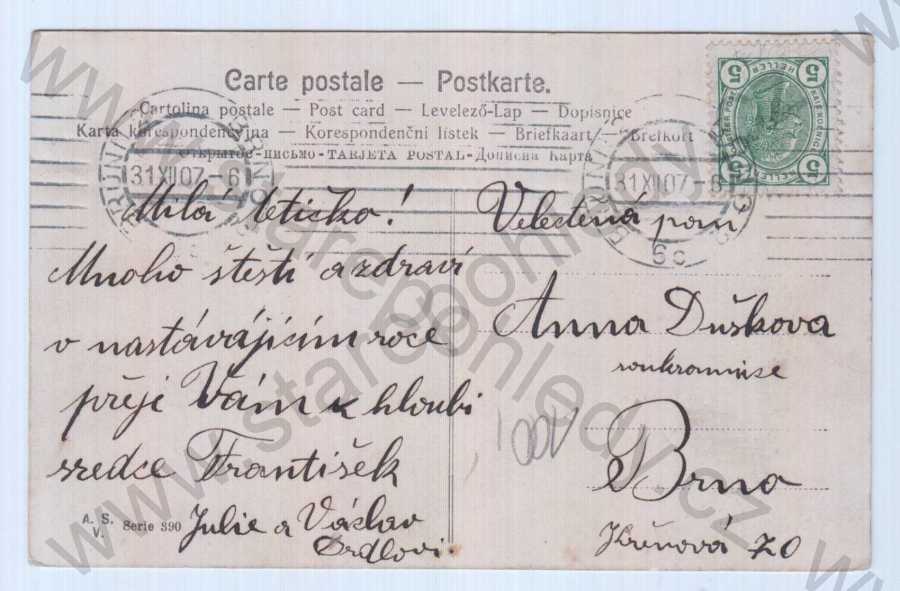 Carte postale — Postkarte.
Cartolina postale — Post card — Levelező-Lap — Dopisnice
Karta korespondencyjna — Korespondenční lístek — Briefkaart — Brefkort
Открытое-письмо-TARJETA POSTAL-Дописна Карта
5 HELLER 5
5 HELLER 5
BRÜNN BRNO
31 XII 07 - 6
31 XII 07 - 6
6c
Milá tetičko!
Mnoho štěstí a zdraví
v nastávajícím roce
přeji Vám z hloubi
srdce František
Julie a Václav
Ordlovi.
A. S. V. Serie 390
Veledená paní
Anna Dušková
soukromnice
Brno
Křenová 70
www.starepohledy.cz